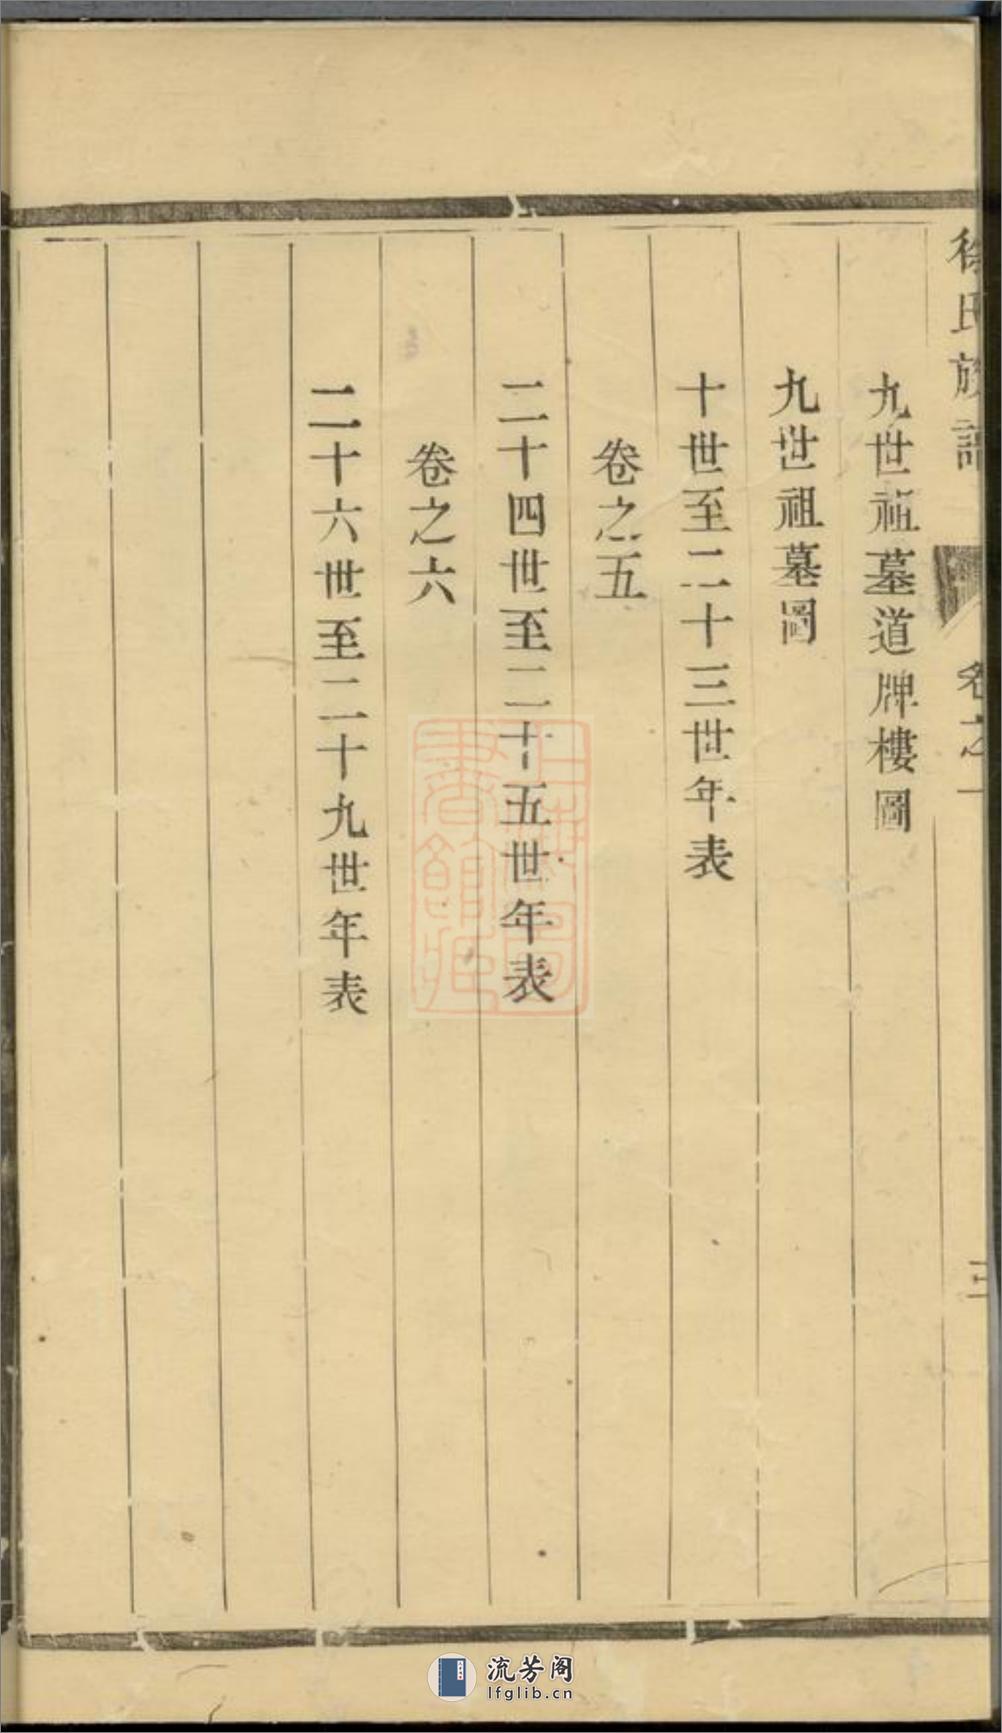 徐氏族譜
卷之一
三
九世祖墓道牌樓圖
九世祖墓圖
十世至二十三世年表
卷之五
二十四世至二十五世年表
卷之六
二十六世至二十九世年表
上海圖書館藏
流芳阁
lfglib.cn